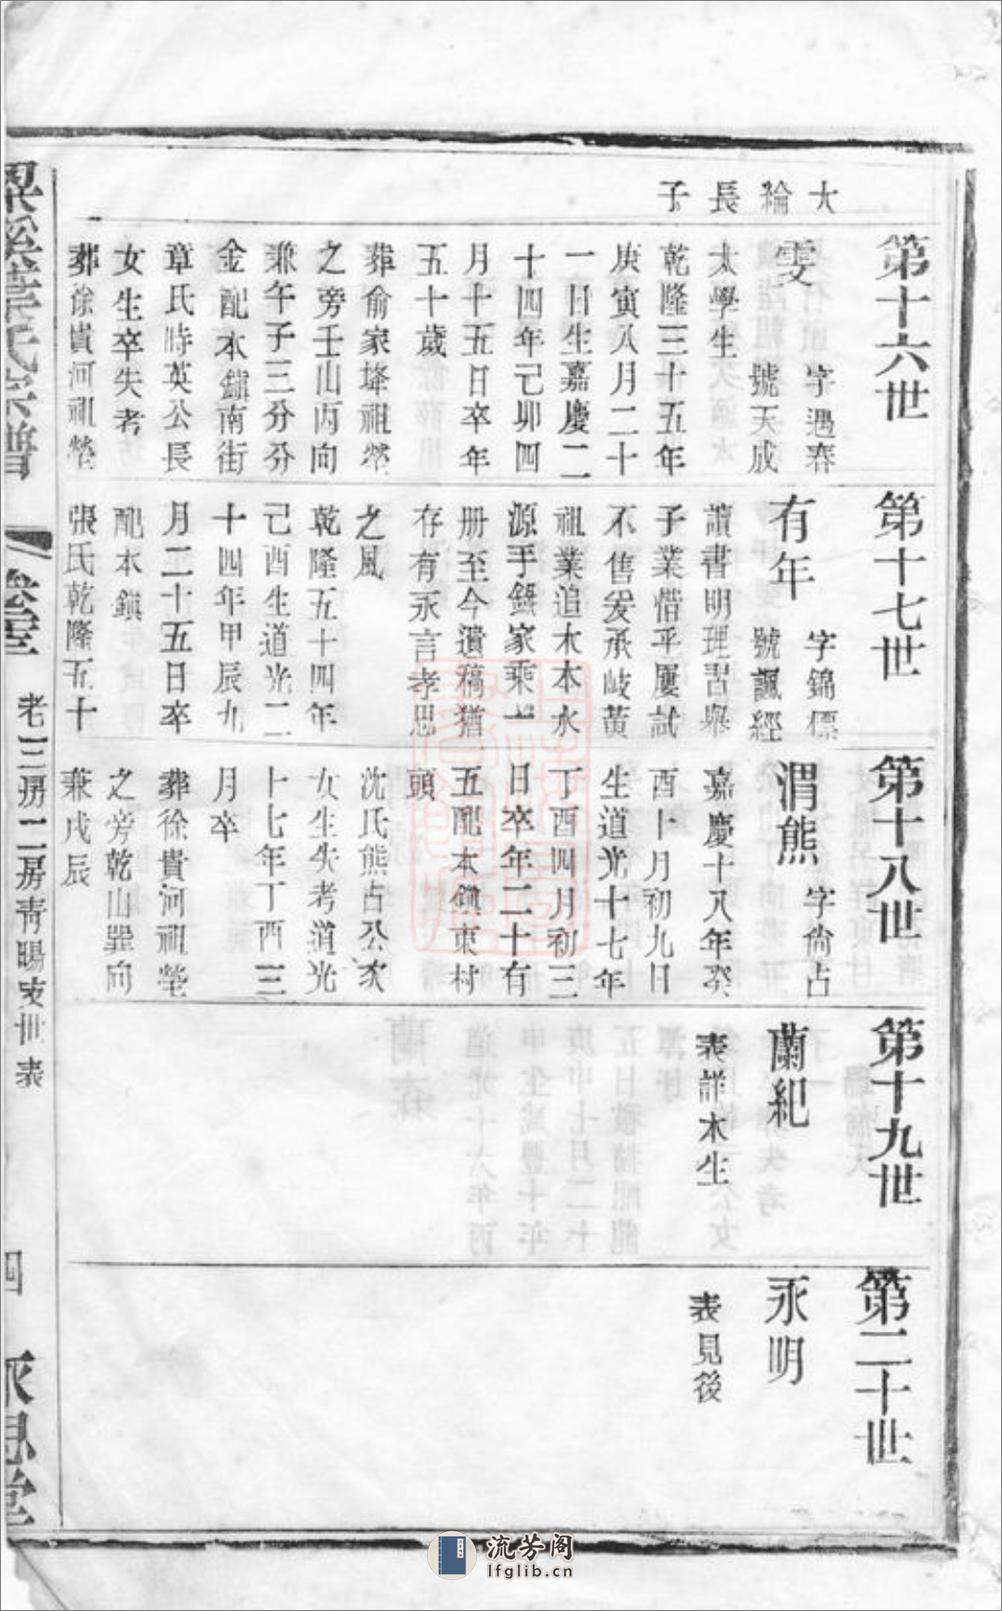 大綸長子
第十六世
雯
字遇春
號天成
太學生
乾隆三十五年
庚寅八月二十
一日生嘉慶二
十四年己卯四
月十五日卒年
五十歲
葬俞家㘰祖塋
之旁壬山丙向
兼午子三分分
金配本鎮南街
章氏時英公長
女生卒失考
葬徐貴河祖塋
第十七世
有年
字錦標
號諷經
讀書明理習舉
子業惜乎屢試
不售爰承岐黃
祖業追木本水
源手錄家乘一
册至今遺稿猶
存有永言孝思
之風
乾隆五十四年
己酉生道光二
十四年甲辰九
月二十五日卒
配本鎮
張氏乾隆五十
第十八世
渭熊
字尙占
嘉慶十八年癸
酉十月初九日
生道光十七年
丁酉四月初三
日卒年二十有
五配本鎮東村
頭
沈氏熊占公次
女生失考道光
十七年丁酉三
月卒
葬徐貴河祖塋
之旁乾山巽向
兼戌辰
第十九世
蘭紀
表詳木生
第二十世
永明
表見後
氏宗譜
老三房二房靑暘支世表
四
永思堂
流芳阁
lfglib.cn